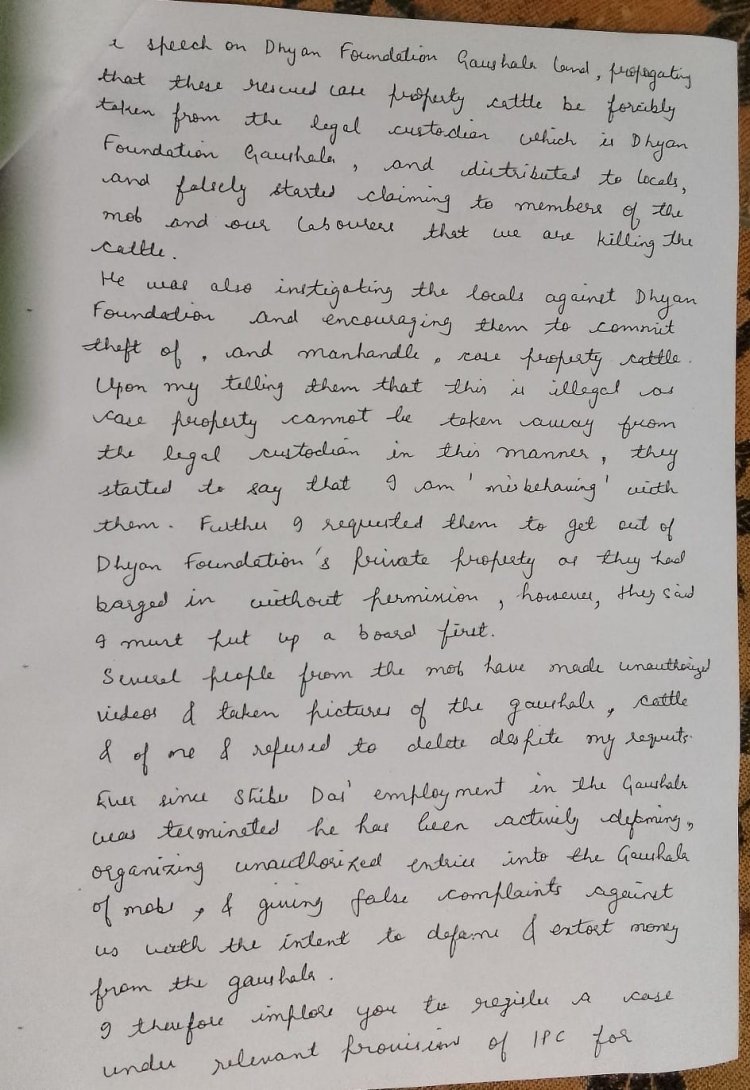 a speech on Dhyan Foundation Gaushala land, propogating
that these rescued case property cattle be forcibly
taken from the legal custodian which is Dhyan
Foundation Gaushala, and distributed to locals,
and falsely started claiming to members of the
mob and our labourers that we are killing the
cattle.
He was also instigating the locals against Dhyan
Foundation and encouraging them to commit
theft of, and manhandle, case property cattle.
Upon my telling them that this is illegal as
case property cannot be taken away from
the legal custodian in this manner, they
started to say that I am 'misbehaving' with
them. Further I requested them to get out of
Dhyan Foundation's private property as they had
barged in without permission, however, they said
I must put up a board first.
Several people from the mob have made unauthorized
videos & taken pictures of the gaushala, cattle
& of me & refused to delete despite my requests.
Ever since Shibu Das' employment in the Gaushala
was terminated he has been actively defaming,
organizing unauthorized entries into the Gaushala
of mobs, & giving false complaints against
us with the intent to defame & extort money
from the gaushala.
I therefore implore you to register a case
under relevant provisions of IPC for